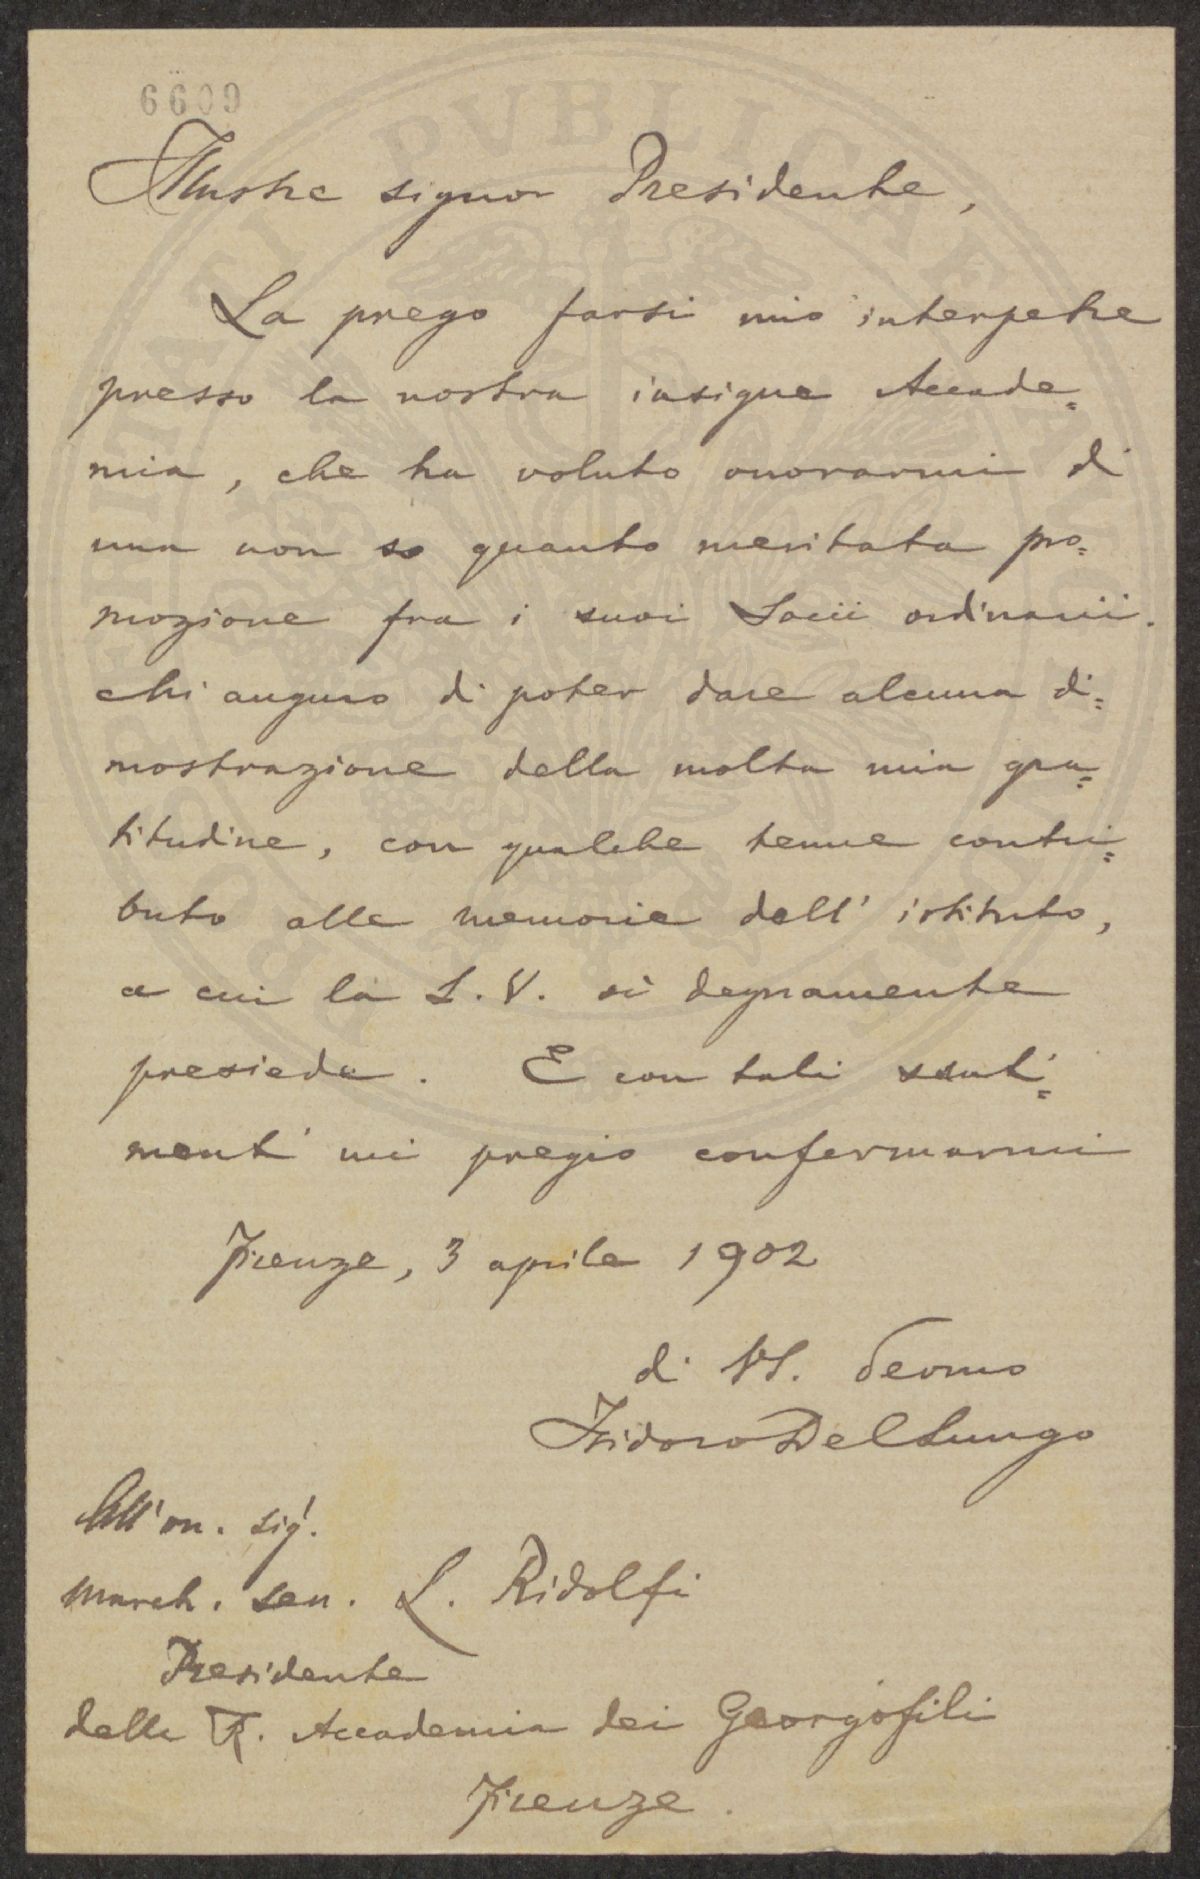 6609
Illustre signor Presidente,
La prego farsi mio interpetre
presso la nostra insigne Accade=
mia, che ha voluto onorarmi di
una non so quanto meritata pro=
mozione fra i suoi Socii ordinarii.
Mi auguro di poter dare alcuna di=
mostrazione della molta mia gra=
titudine, con qualche tenue contri=
buto alle memorie dell' istituto,
a cui la S. V. sì degnamente
presiede. E con tali senti=
menti mi pregio confermarmi
Firenze, 3 aprile 1902
di VS. devmo
Isidoro Del Lungo
All' on. sig.
march. sen. L. Ridolfi
Presidente
della R. Accademia dei Georgofili
Firenze.